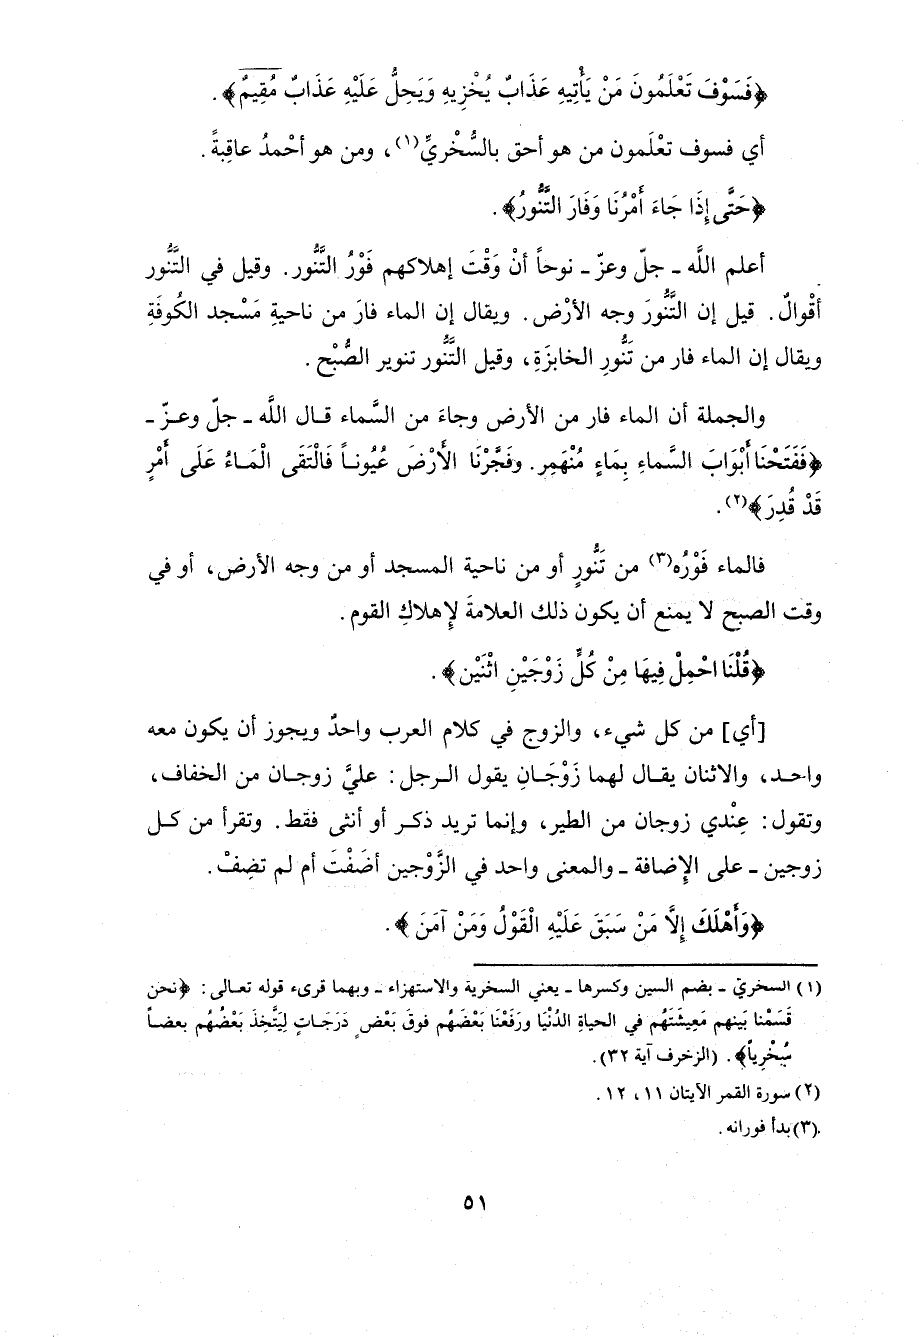 ﴿فَسَوْفَ تَعْلَمُونَ مَنْ يَأْتِيهِ عَذَابٌ يُخْزِيهِ وَيَحِلُّ عَلَيْهِ عَذَابٌ مُقِيمٌ﴾.
أي فسوف تعْلَمون من هو أحق بالسُّخْريِّ(١)، ومن هو أحْمدُ عاقِبةً.
﴿حَتَّى إِذَا جَاءَ أَمْرُنَا وَفَارَ التَّنُّورُ﴾.
أعلم اللَّه ـ جلّ وعزّ ـ نوحاً أنْ وَقْتَ إهلاكهم فَوْرُ التَّنُّور. وقيل في التَّنُّور
أقْوالٌ. قيل إن التَّنُّورَ وجه الأرْض. ويقال إن الماء فارَ من ناحيةِ مَسْجد الكُوفَةِ
ويقال إن الماء فار من تَنُّورِ الخابزَةِ، وقيل التَّنُّور تنوير الصُّبْح.
والجملة أن الماء فار من الأرض وجاءَ من السَّماء قـال اللَّه ـ جلّ وعـزّ ـ
﴿فَفَتَحْنَا أَبْوَابَ السَّماءِ بِمَاءٍ مُنْهَمِر. وفَجَّرْنَا الأَرْضَ عُيُونـاً فَالْتَقَى الْمَـاءُ عَلَى أَمْرٍ
قَدْ قُدِرَ﴾(٢).
فالماء فَوْرُه(٣) من تَنُّورٍ أو من ناحية المسجد أو من وجه الأرض، أو في
وقت الصبح لا يمنع أن يكون ذلك العلامةَ لإهلاكِ القوم.
﴿قُلْنَا احْمِلْ فِيهَا مِنْ كُلٍّ زَوْجَيْنِ اثْنَيْن﴾.
[أي] من كل شيء، والزوج في كلام العرب واحدٌ ويجوز أن يكون معه
واحد، والاثنان يقال لهما زَوْجَـانِ يقول الرجل: عليَّ زوجـان من الخفاف،
وتقول: عِنْدي زوجان من الطير، وإنما تريد ذكـر أو أنثى فقط. وتقرأ من كـل
زوجين ـ على الإضافة ـ والمعنى واحد في الزَّوْجين أضَفْتَ أم لم تضِفْ.
﴿وَأَهْلَكَ إِلَّا مَنْ سَبَقَ عَلَيْهِ الْقَوْلُ وَمَنْ آمَنَ﴾.
(١) السخريّ ـ بضم السين وكسرها ـ يعني السخرية والاستهزاء ـ وبهما قرىء قوله تعالى: ﴿نحن
قَسَمْنا بَينهم مَعِيشَتَهُم في الحياةِ الدُّنْيَا ورَفَعْنَا بَعْضَهُم فوقَ بَعْضٍ دَرَجَـاتٍ لِيَتَّخِذَ بَعْضُهُم بعضـاً
سُخْرِياً﴾. (الزخرف آية ٣٢).
(٢) سورة القمر الآيتان ١١، ١٢.
(٣) بدأ فورانه.
٥١